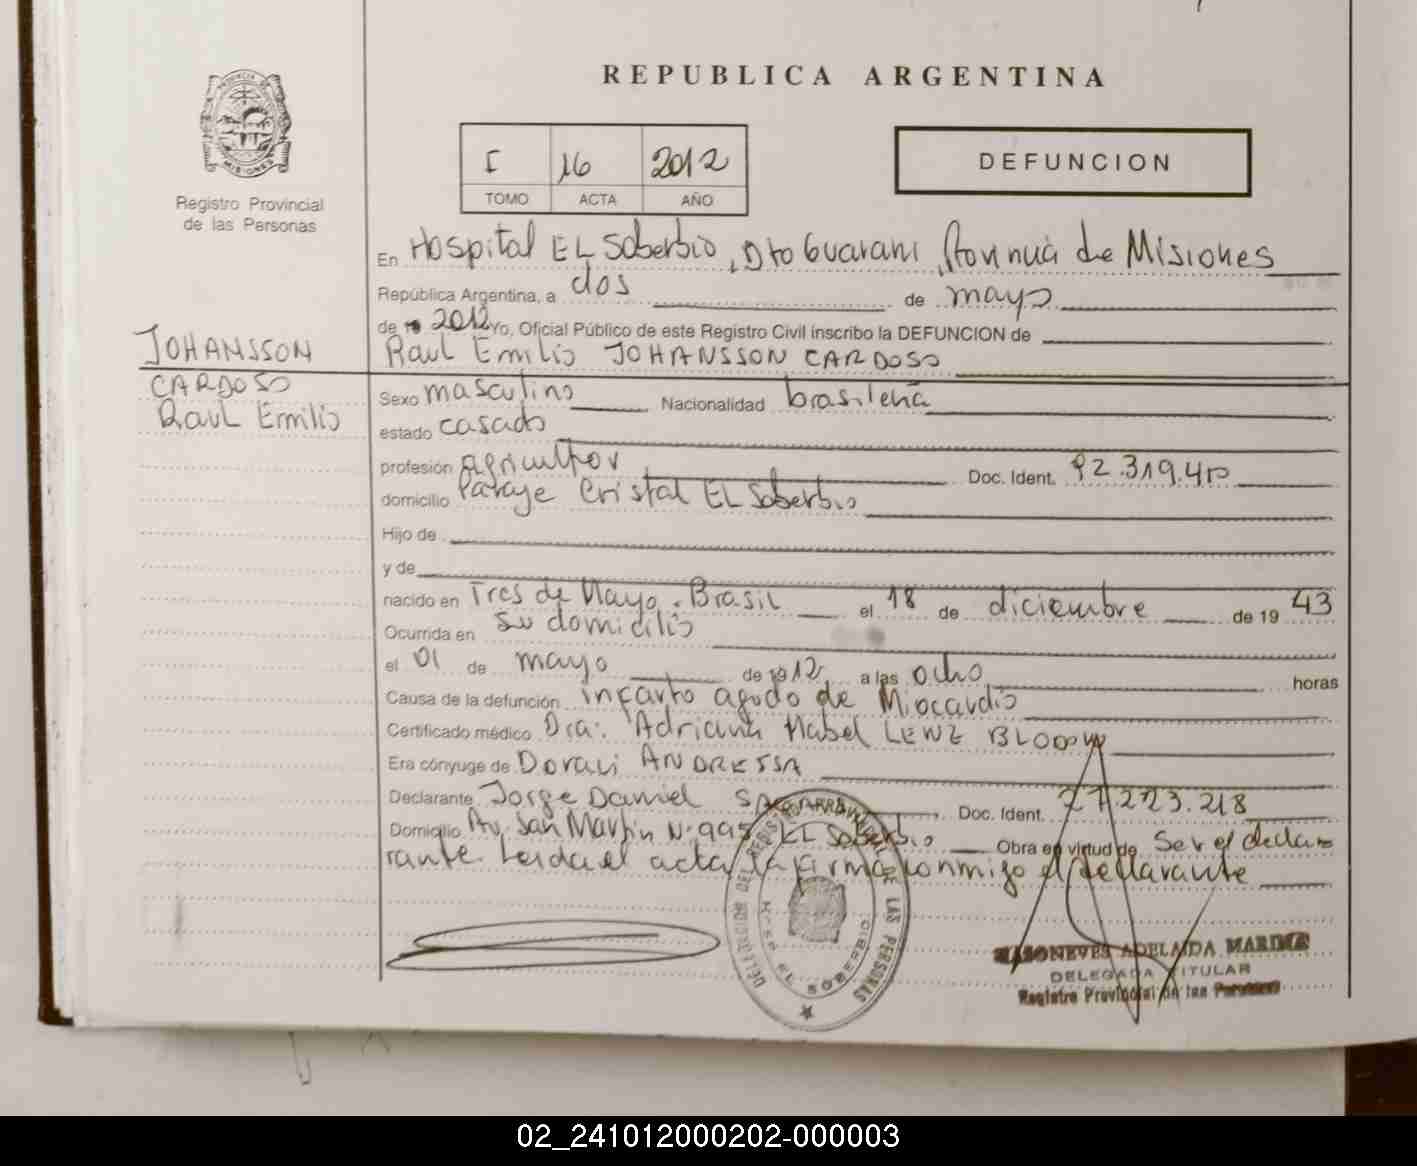 REPUBLICA ARGENTINA
PROVINCIA DE
MISIONES
Registro Provincial
de las Personas
I 16 2012
TOMO ACTA AÑO
DEFUNCION
En Hospital EL Soberbio, Dto Guarani, Provincia de Misiones
República Argentina, a dos de mayo
de 2012 Yo, Oficial Público de este Registro Civil inscribo la DEFUNCION de
Raul Emilio JOHANSSON CARDOSO
JOHANSSON
CARDOSO
Raul Emilio
Sexo masculino Nacionalidad brasileña
estado casado
profesión agricultor Doc. Ident. 92.319.410
domicilio Paraje Cristal EL Soberbio
Hijo de
y de
nacido en Tres de Mayo. Brasil el 18 de diciembre de 19 43
Ocurrida en su domicilio
el 01 de mayo de 1912 a las ocho horas
Causa de la defunción infarto agudo de Miocardio
Certificado médico Dra: Adriana Mabel LENZ
Era cónyuge de Doraci ANDRESSA
Declarante Jorge Daniel Doc. Ident. 27.223.218
Domicilio Av. San Martin N° 995 EL Soberbio Obra en virtud de Ser el decla
rante. Leida el acta la firma conmigo el declarante
DELEGACION DEL REGISTRO PROVINCIAL DE LAS PERSONAS
EL SOBERBIO
ADELAIDA MARINA
DELEGADA TITULAR
Registro Provincial de las Personas
02_241012000202-000003